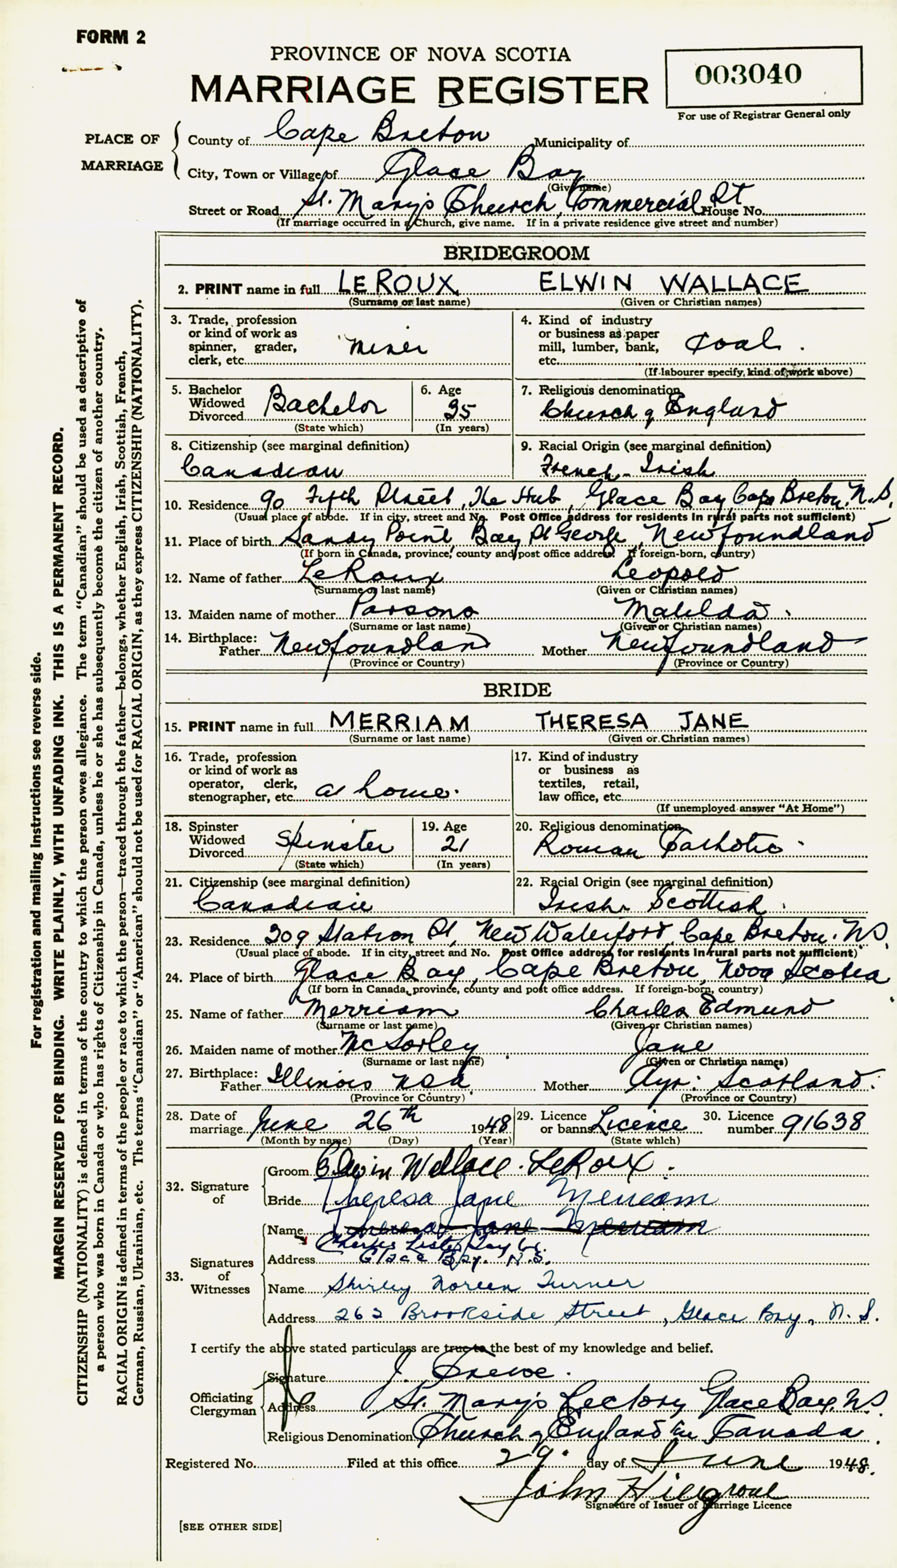 FORM 2
PROVINCE OF NOVA SCOTIA
MARRIAGE REGISTER
003040
For use of Registrar General only
PLACE OF MARRIAGE
County of Cape Breton Municipality of
City, Town or Village of Glace Bay
(Give name)
Street or Road St. Mary's Church, Commercial St House No.
(If marriage occurred in a Church, give name. If in a private residence give street and number)
BRIDEGROOM
2. PRINT name in full LEROUX ELWIN WALLACE
(Surname or last name) (Given or Christian names)
3. Trade, profession or kind of work as spinner, grader, clerk, etc. miner
4. Kind of industry or business as paper mill, lumber, bank, etc. Coal.
(If labourer specify, kind of work above)
5. Bachelor Widowed Divorced Bachelor
(State which)
6. Age 35
(In years)
7. Religious denomination Church of England
8. Citizenship (see marginal definition) Canadian
9. Racial Origin (see marginal definition) French-Irish
10. Residence 90 Fifth Street, The Hub, Glace Bay Cape Breton N.S.
(Usual place of abode. If in city, street and No. Post Office address for residents in rural parts not sufficient)
11. Place of birth Sandy Point Bay St George, Newfoundland
(If born in Canada, province, county and post office address. If foreign-born, country)
12. Name of father LeRoux Leopold
(Surname or last name) (Given or Christian names)
13. Maiden name of mother Parsons Matilda.
(Surname or last name) (Given or Christian names)
14. Birthplace: Father Newfoundland Mother Newfoundland
(Province or Country) (Province or Country)
BRIDE
15. PRINT name in full MERRIAM THERESA JANE
(Surname or last name) (Given or Christian names)
16. Trade, profession or kind of work as operator, clerk, stenographer, etc. at home.
17. Kind of industry or business as textiles, retail, law office, etc.
(If unemployed answer "At Home")
18. Spinster Widowed Divorced Spinster
(State which)
19. Age 21
(In years)
20. Religious denomination Roman Catholic.
21. Citizenship (see marginal definition) Canadian
22. Racial Origin (see marginal definition) Irish-Scottish.
23. Residence 309 Station St, New Waterford, Cape Breton. N.S.
(Usual place of abode. If in city, street and No. Post Office address for residents in rural parts not sufficient)
24. Place of birth Glace Bay, Cape Breton, Nova Scotia
(If born in Canada, province, county and post office address. If foreign-born, country)
25. Name of father Merriam Charles Edmund
(Surname or last name) (Given or Christian names)
26. Maiden name of mother McSorley Jane
(Surname or last name) (Given or Christian names)
27. Birthplace: Father Illinois USA Mother Ayr: Scotland.
(Province or Country) (Province or Country)
28. Date of marriage June 26th 1948
(Month by name) (Day) (Year)
29. Licence or banns Licence
(State which)
30. Licence number 91638
32. Signature of
Groom Elwin Wallace LeRoux.
Bride Theresa Jane Merriam
33. Signatures of Witnesses
Name Theresa Jane Merriam
Charles Leslie
Address Glace Bay. N.S.
Name Shirley Noreen Turner
Address 262 Brookside Street, Glace Bay, N.S.
I certify the above stated particulars are true to the best of my knowledge and belief.
Officiating Clergyman
Signature J.
Address St. Mary's Rectory Glace Bay, NS.
Religious Denomination Church of England in Canada.
Registered No. Filed at this office 29. day of June 1948.
John
Signature of Issuer of Marriage Licence
[SEE OTHER SIDE]
For registration and mailing instructions see reverse side.
MARGIN RESERVED FOR BINDING. WRITE PLAINLY, WITH UNFADING INK. THIS IS A PERMANENT RECORD.
CITIZENSHIP (NATIONALITY) is defined in terms of the country to which the person owes allegiance. The term "Canadian" should be used as descriptive of
a person who was born in Canada or who has rights of Citizenship in Canada, unless he or she has subsequently become the citizen of another country.
RACIAL ORIGIN is defined in terms of the people or race to which the person—traced through the father—belongs, whether English, Irish, Scottish, French,
German, Russian, Ukrainian, etc. The terms "Canadian" or "American" should not be used for RACIAL ORIGIN, as they express CITIZENSHIP (NATIONALITY).